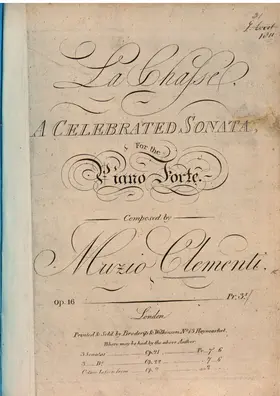 La Chasse.
A CELEBRATED SONATA,
For the
Piano Forte.
Composed by
Muzio Clementi.
Op. 16 Pr. 3/
London
Printed & Sold by Broderip & Wilkinson No. 13 Haymarket,
Where may be had by the above Author
3 Sonatas Op. 21 Pr. 7 6
3 Do. Op. 22 7 6